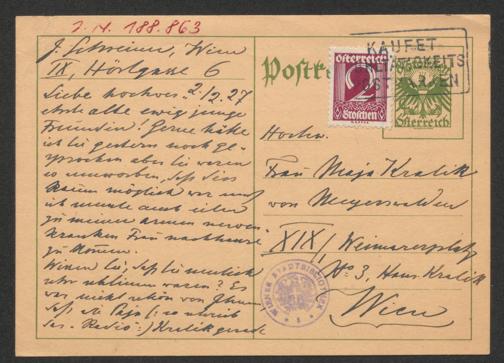 I. N. 188.863
J. Schreiner, Wien
IX, Hörlgasse 6
2/2. 27
Liebe hochver.
alte ewig junge
Freundin! Gerne hätte
ich Sie gestern noch ge-
sprochen aber Sie waren
so umworben, daß dies
kaum möglich war und
ich mußte auch eilen
zu meiner armen nerven-
kranken Frau nachhause
zu kommen.
Wissen Sie, daß Sie neulich
sehr schlimm waren? Es
war nicht schön von Ihnen
das Radio :) Kralik gerade
Postk
KAUFET
2
Groschen
Österreich
Österreich
Hochw.
Frau Maja Kralik
von Meyerswalden
XIX/ Weimarerplatz
No 3, Haus Kralik
Wien
WIENER STADTBIBLIOTHEK